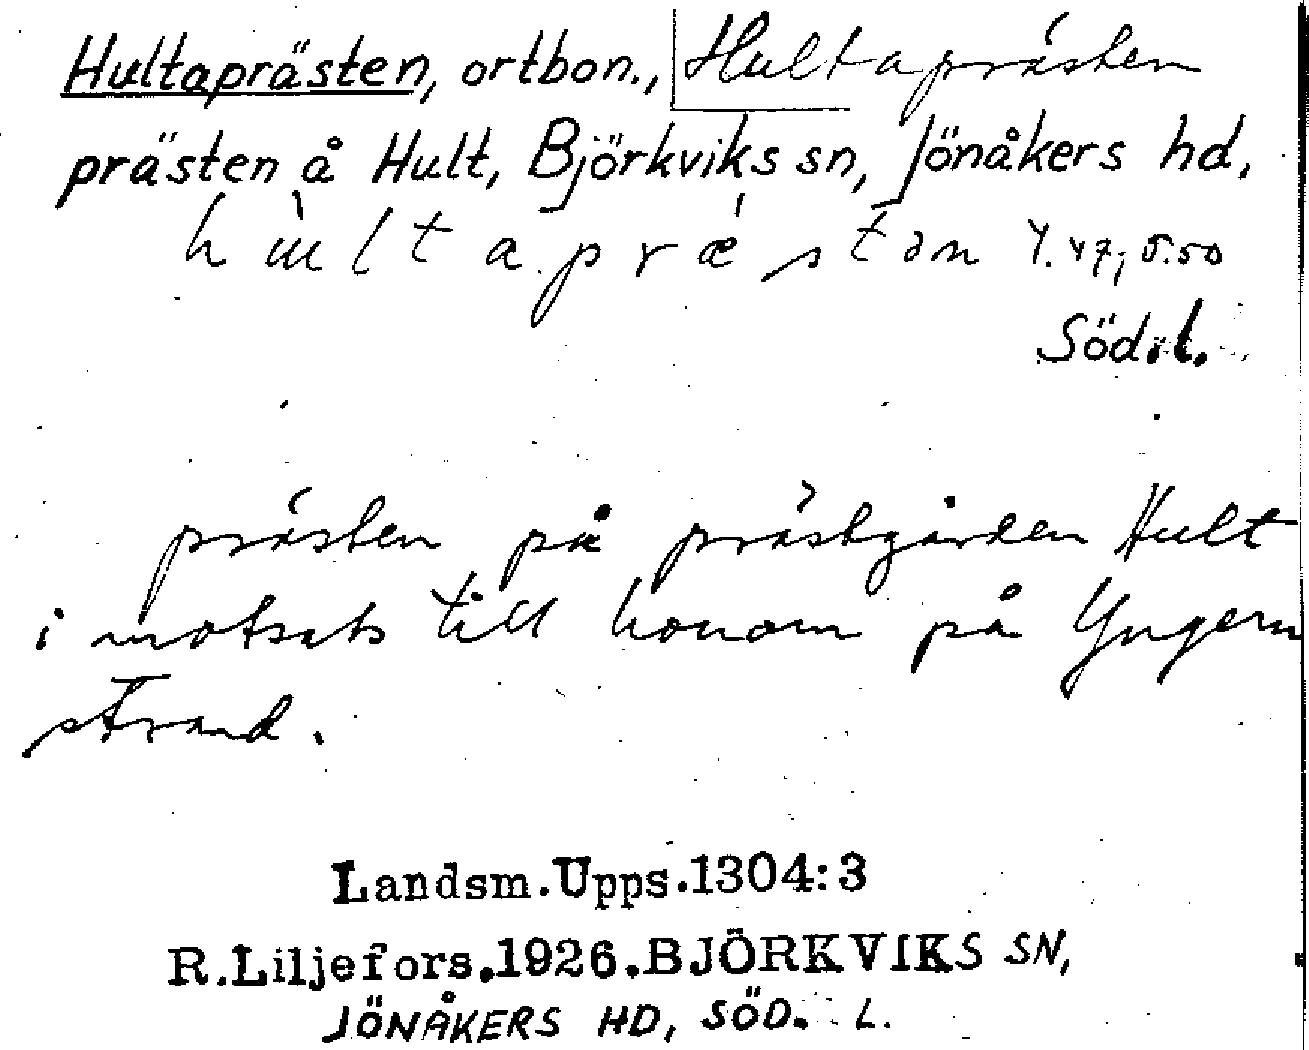 Hultaprästen, ortbon., Hultaprästen
prästen å Hult, Björkviks sn, Jönåkers hd,
hùltaprǽstən 4.47, 5.50
Söd.l.
prästen på prästgården Hult
i motsats till honom på Yngern
strand.
Landsm.Upps.1304:3
R.Liljefors.1926.BJÖRKVIKS SN,
JÖNÅKERS HD, SÖD. L.